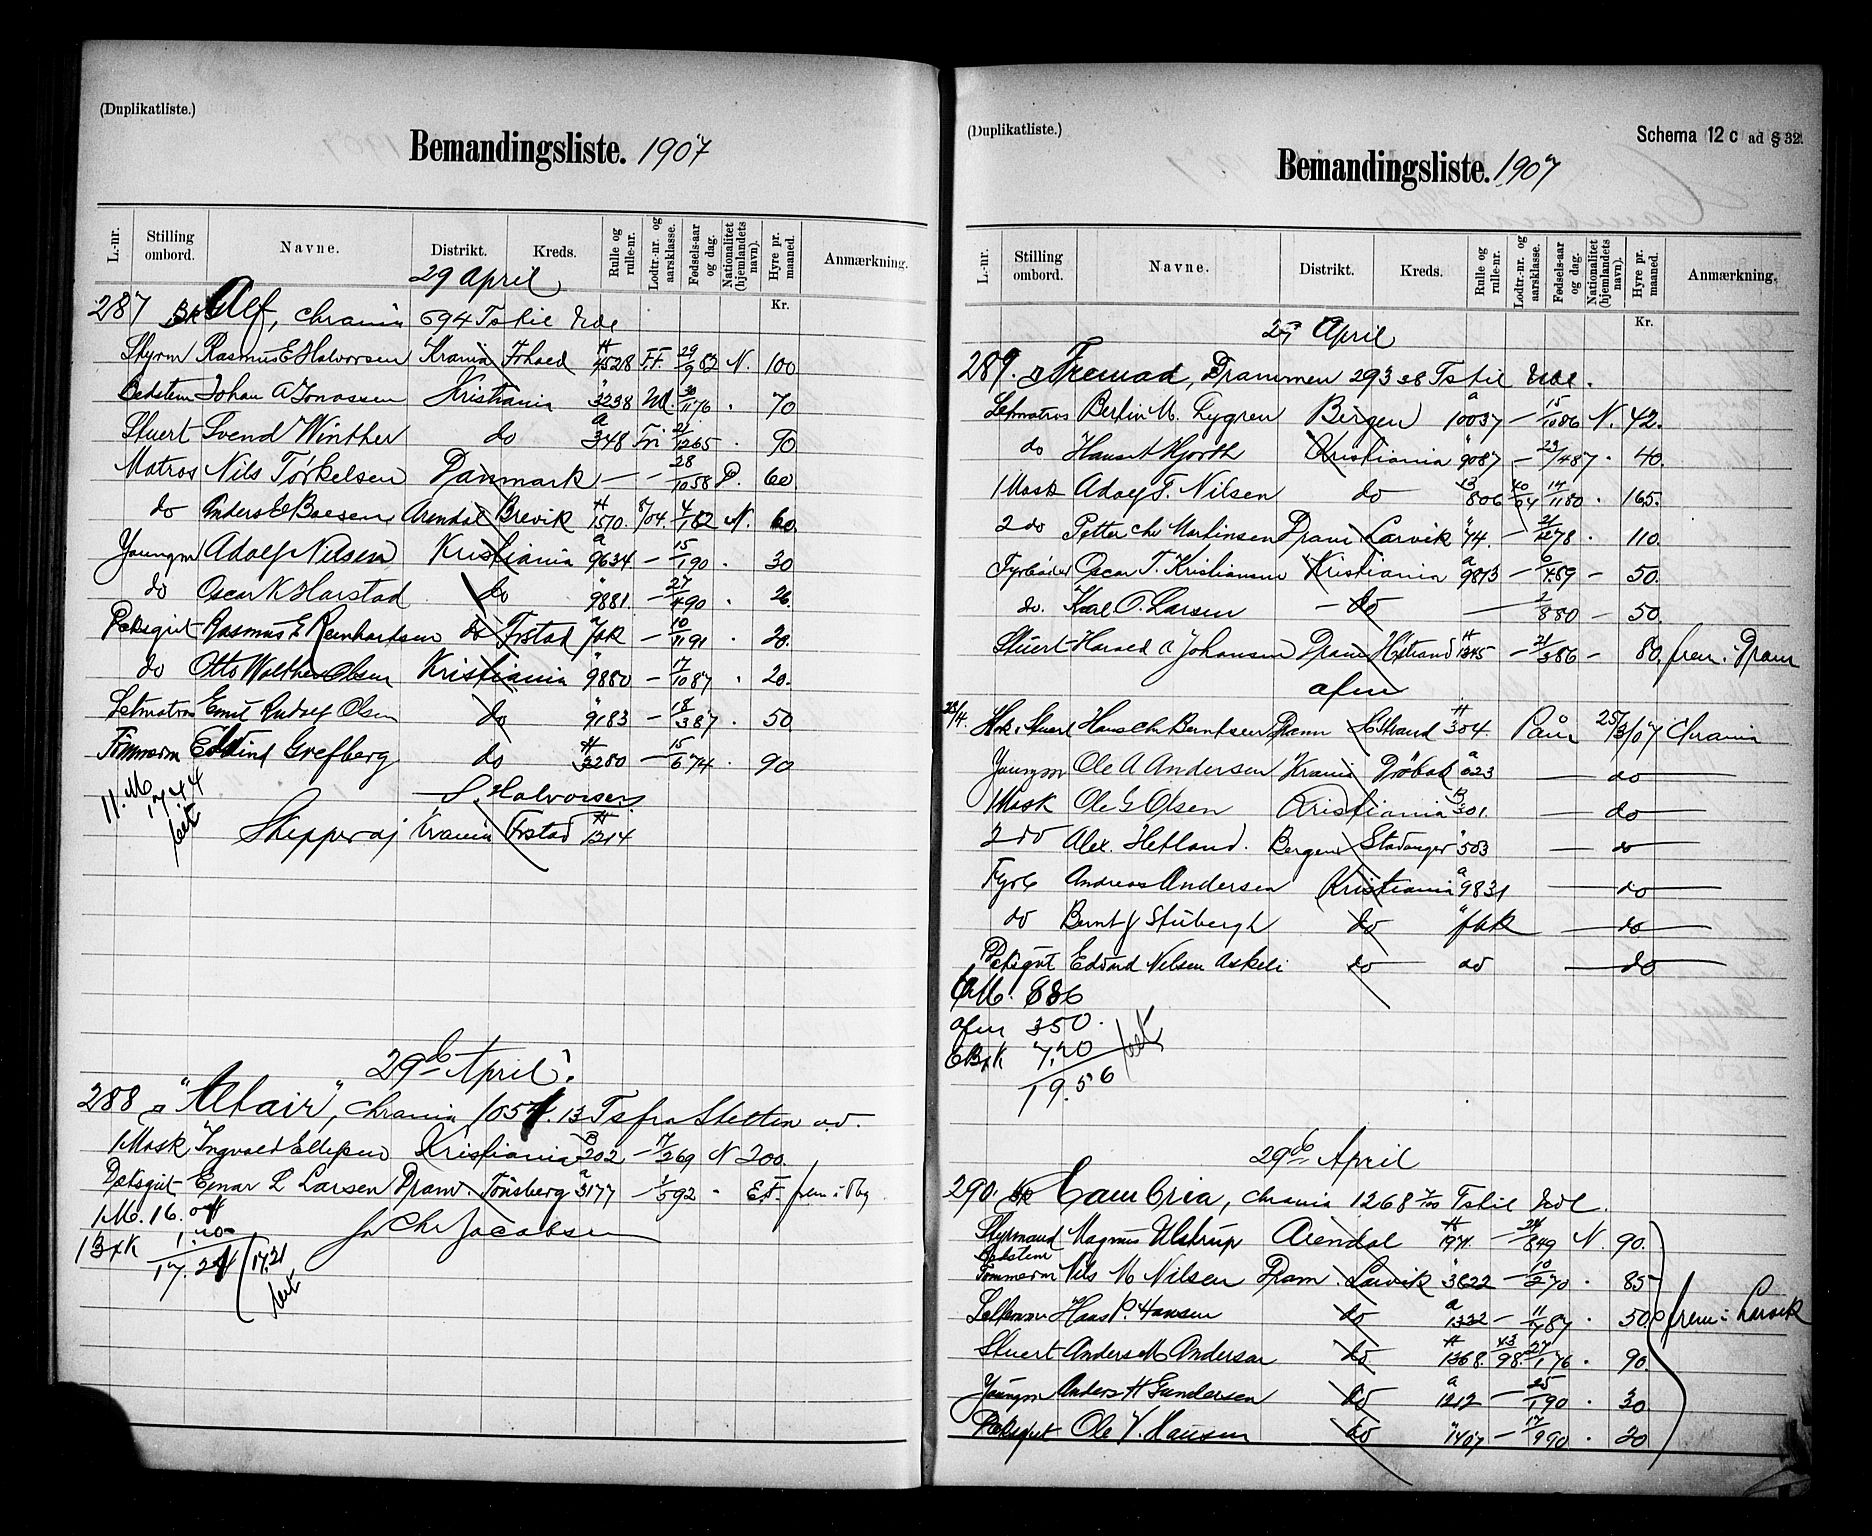 (Duplikatliste.)
Bemandingsliste. 1907
L.-nr. Stilling ombord. Navne. Distrikt. Kreds. Rulle og rulle-nr. Lodtr.-nr. og aarsklasse. Fødsels-aar og dag. Nationalitet (hjemlandets navn). Hyre pr. maaned. Anmærkning.
29 April
Kr.
287 Alf, Chrania 694 Ts til
Styrm Rasmus E Halvorsen Krania 4528 F.F. 29/9 82 N. 100
Bedstem Johan A Jonassen Kristiania 3238 30/11 76 " 70
Stuert Svend Winther do a 348 Fri 21/12 65 " 90
Matros Nils Torkelsen Danmark — — 28/10 58 D. 60
do Anders E Boesen Arendal Brevik H 1510 8/04 4/1 82 N. 60
Youngm Adolf Nilsen Kristiania a 9634 — 15/1 90 " 30
do Oscar K Harstad do " 9881 — 27/4 90 " 26.
Dæksgut Rasmus E Reinhartsen do Frstad — 10/11 91 " 20.
do Otto Walther Olsen Kristiania " 9880 — 17/10 87 " 20.
Letmatros Emil Rudolf Olsen do " 9183 — 18/3 87 " 50
Tømmerm Grefberg do H 3280 — 15/6 74 " 90
S. Halvorsen
11. M 17.44
Skipper aj Krania Frstad H 1314
29de April.
288 "Altair", Chrania 1054.13 Ts fra Stettin
1 Mask Ingvald Ellefsen Kristiania B 202 — 17/2 69 N 200.
Dæksgut Einar L Larsen Dram. Tønsberg a 3177 — 1/5 92 " frem i Tbg
1 M. 16.04
1 BxK 1.20
17.24 17.21
Chr Jacobsen
(Duplikatliste.)
Schema 12 c ad § 32.
Bemandingsliste. 1907
L.-nr. Stilling ombord. Navne. Distrikt. Kreds. Rulle og rulle-nr. Lodtr.-nr. og aarsklasse. Fødsels-aar og dag. Nationalitet (hjemlandets navn). Hyre pr. maaned. Anmærkning.
Kr.
29 April
289. Fremad, Drammen 293 38 Ts til
Letmatros Berlin M. Fygren Bergen a 10037 — 15/10 86 N. 42.
do Hans A Hjorth Kristiania " 9087 — 23/4 87 " 40.
1 Mask Adolf F. Nilsen do B 806 40/04 14/11 80 " 165.
2 do Petter Chr Martinsen Dram Larvik " 74. — 21/12 78 " 110.
Fyrbøder Oscar T. Kristiansen Kristiania a 9873 — 6/4 89 — 50.
do. Karl O. Larsen — do — 2/8 80 — 50.
Stuert Harald A Johansen Dram H strand H 1345 — 21/3 86 — 80. frem i Dram
afm
28/4. Kok & Stuert Hans Chr Berntsen Dram H Strand H 304 Paam 25/3/07 Chrania
Youngm Ole A Andersen Krania Drøbak a 623 — do —
1 Mask Ole G Olsen Kristiania B 301. — do —
2 do Alex. Hetland. Bergen Stavanger " 503 — do —
Fyrb Andreas Andersen Kristiania a 9831 — do —
do Bernt J Stubergh do — do —
Dæksgut Edvard Nilsen Askeli do do — do
6 M. 886
afm 350.
6 BxK 7.20
19.56
29de April
290. Cambria, Chrania 1268 Ts til
Styrmand Magnus Ulstrup Arendal H 1971 — 24/8 49 N. 90.
Bedstem Tømmerm Nils M Nilsen Dram. Larvik " 3622 — 10/2 70 " 85
Hans P. Hansen do a 1332 — 11/7 87 " 50 frem i Larvik
Stuert Anders M Andersen do H 1368. 43/98. 27/1 76 " 90.
Youngm Anders H Gundersen do a 1212 — 25/1 90 " 30
Dæksgut Ole V. Hansen do " 1407 — 17/9 90 " 20